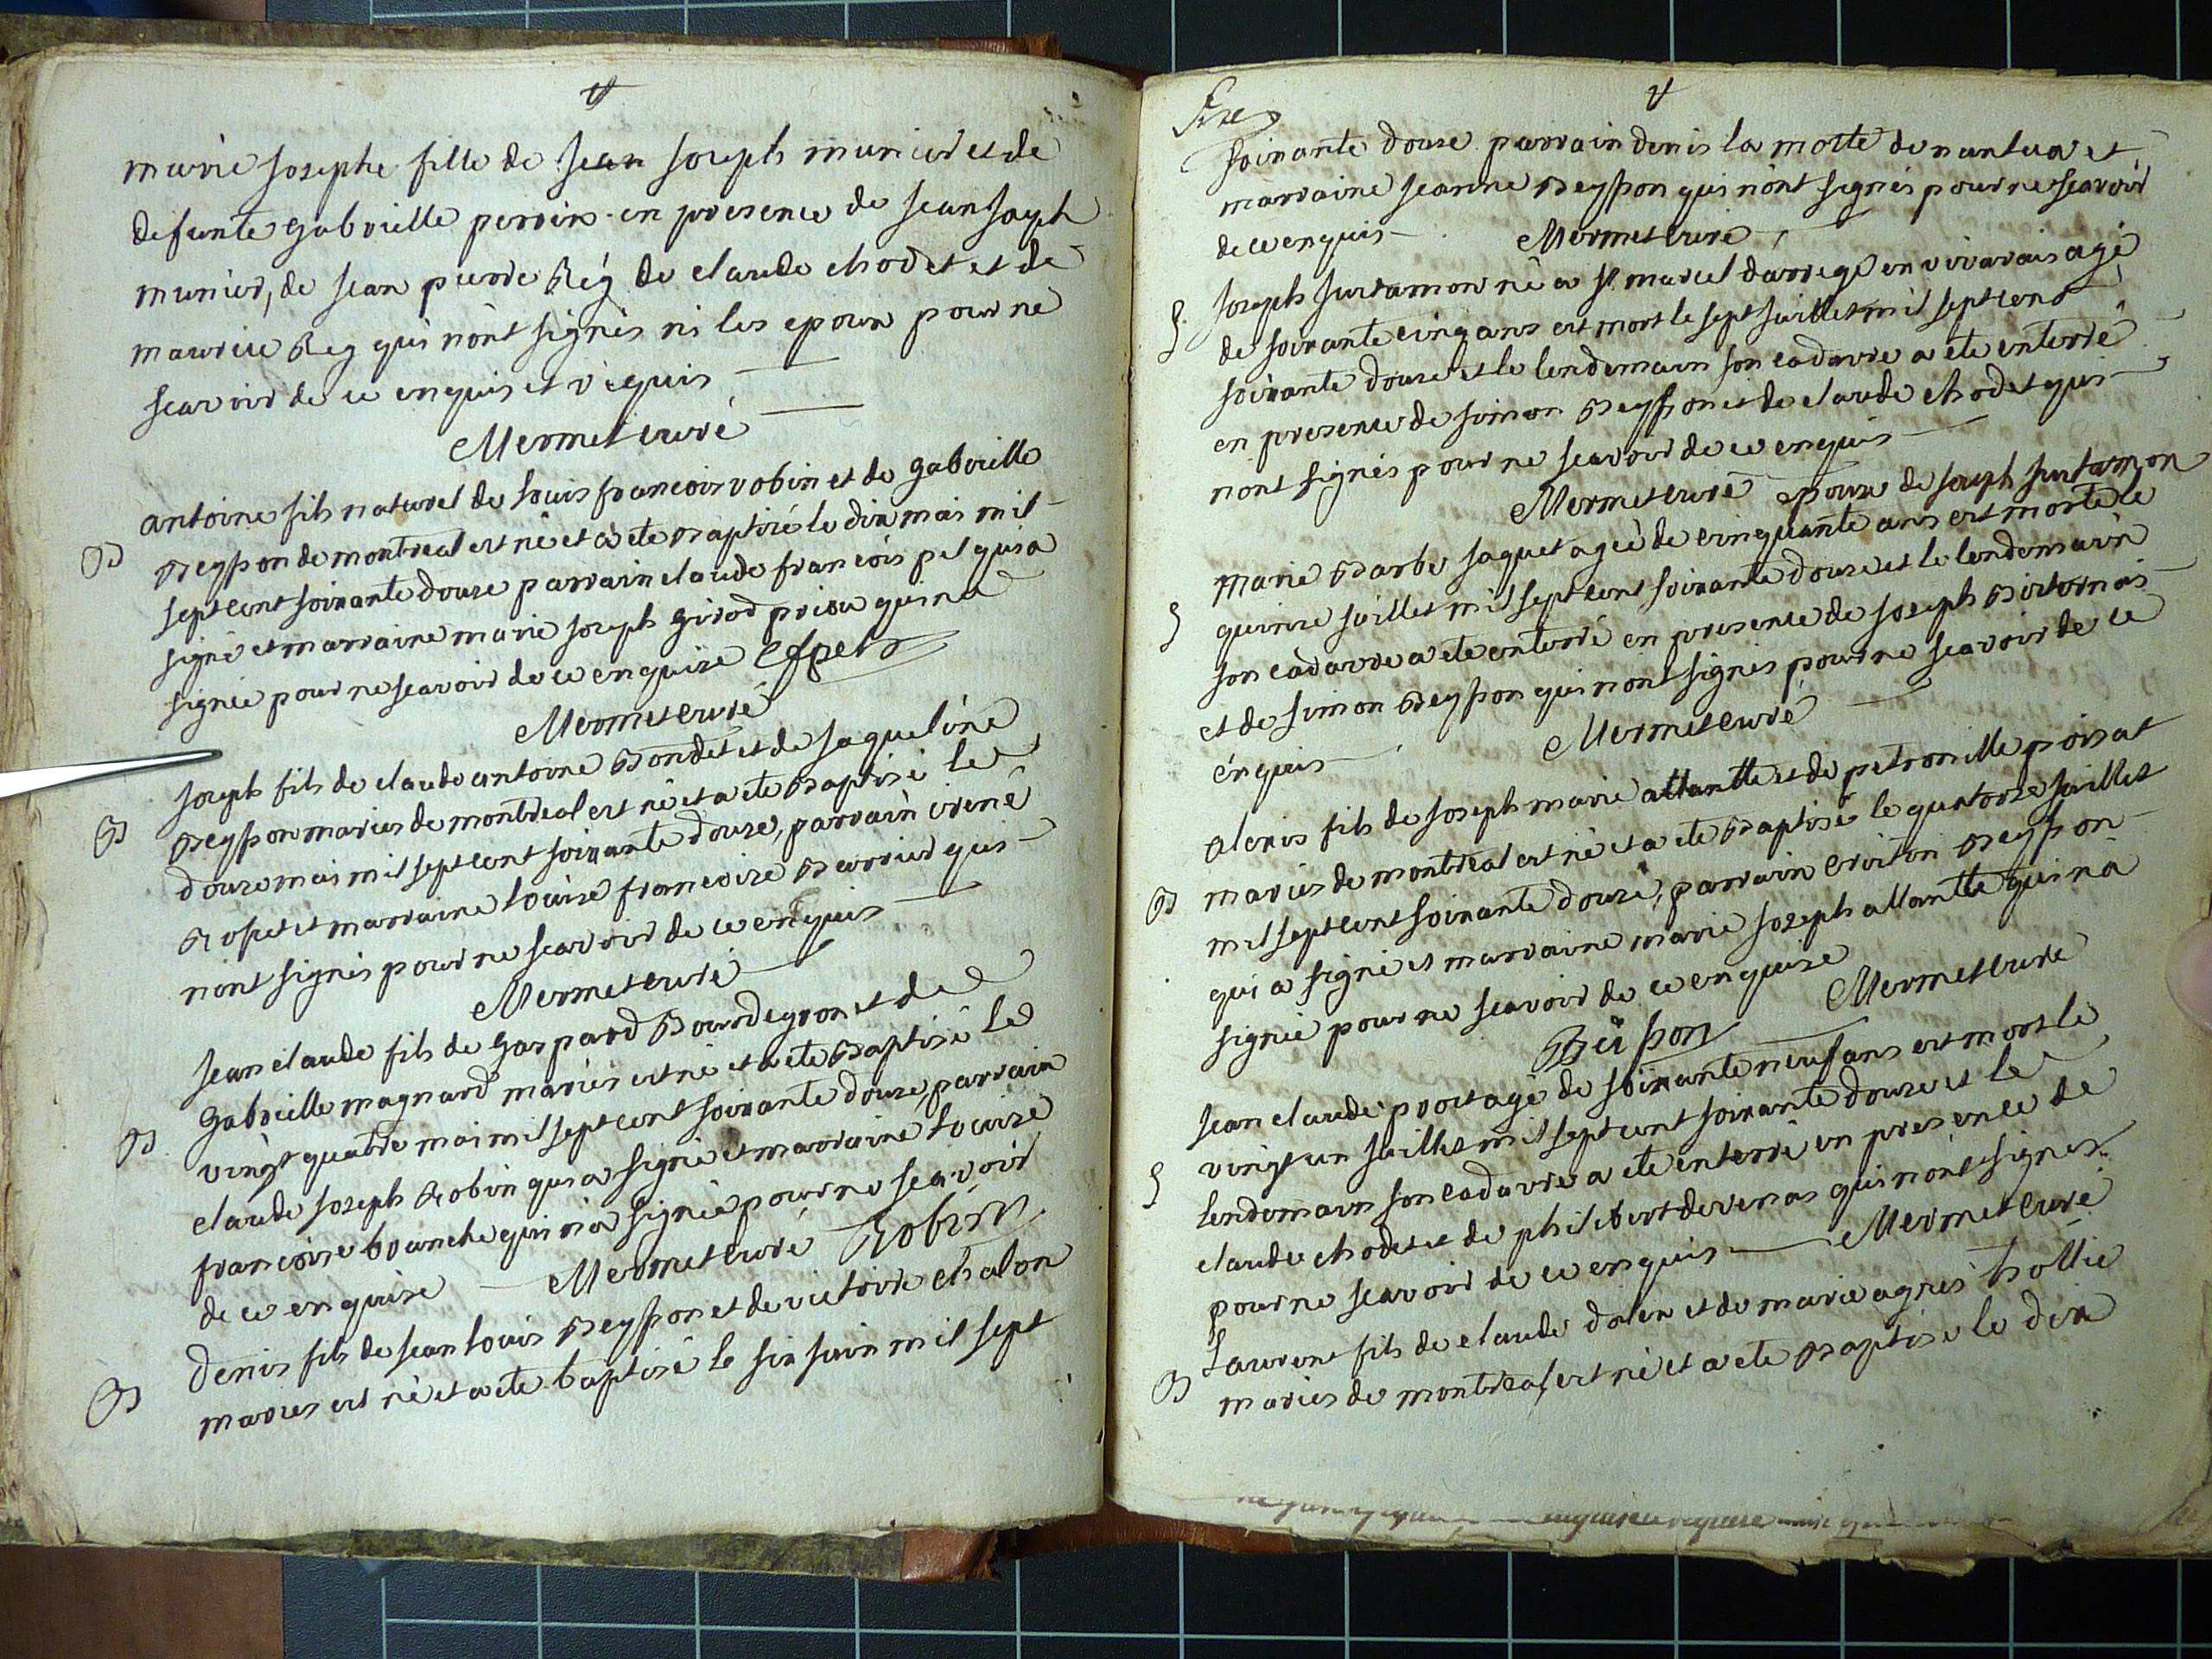 marie josephe fille de jean joseph munier et de
defunte gabrielle perrin en presence de jean joseph
munier, de jean pierre Rég de claude chodet et de
maurice Reg qui n'ont signés ni les epoux pour ne
scavoir de ce enquis et requis
Mermet curé
antoine fils naturel de louis francois robin et de gabrielle
B Beysson de montreal est né et a ete Baptisé le dix mai mil
sept cent soixante douze parrain claude françois pel qui a
signé et marraine marie joseph girod qui na
signée pour ne scavoir de ce enquise Cfpel
Mermet curé
joseph fils de claude antoine Bondet et de jaqueline
B Beysson mariés de montreal est né et a ete Baptisé le
douze mai mil sept cent soixante douze, parrain irené
Ropet et marraine louise francoise Barrier qui
n'ont signés pour ne scavoir de ce enquis
Mermet curé
jean claude fils de gaspard Bourdeyron et de
B gabrielle magnard mariés est né et a ete Baptisé le
vingt quatre mai mil sept cent soixante douze, parrain
claude joseph Robin qui a signé et marraine louise
francoise branche qui n'a signée pour ne scavoir
de ce enquise Mermet curé Robin
B denis fils de jean louis Beysson et de victoire chalon
mariés est né et a ete baptisé le six juin mil sept
soixante douze parrain denis la motte de nantua et
marraine jeanne Beysson qui n'ont signés pour ne scavoir
de ce enquis Mermet curé
S joseph surtamon né a st marcel darrege en vivarais agé
de soixante cinq ans est mort le sept juillet mil sept cent
soixante douze et le lendemain son cadavre a ete enterré
en presence de simon Beysson et de claude chodet qui
n'ont signés pour ne scavoir de ce enquis
Mermet curé epouse de joseph surtamon
marie Barbe jaquet ageé de cinquante ans est morte le
S quinze juillet mil sept cent soixante douze et le lendemain
son cadavre a ete enterré en presence de joseph
et de simon Beysson qui n'ont signés pour ne scavoir de ce
enquis Mermet curé
alexis fils de joseph marie allantte et de petronille poisat
B mariés de montreal est né et a ete Baptisé le quatorze juillet
mil sept cent soixante douze, parrain Beysson
qui a signé et marraine marie joseph allantte qui n'a
signée pour ne scavoir de ce enquise
Béisson Mermet curé
jean claude prost agé de soixante neuf ans est mort le
S vingt un juillet mil sept cent soixante douze et le
lendemain son cadavre a ete enterré en presence de
claude chodet et de philibert devenas qui n'ont signés
pour ne scavoir de ce enquis Mermet curé
laurent fils de claude dolex et de marie agnes hollie
B mariés de montreal, est né et a ete Baptisé le dix